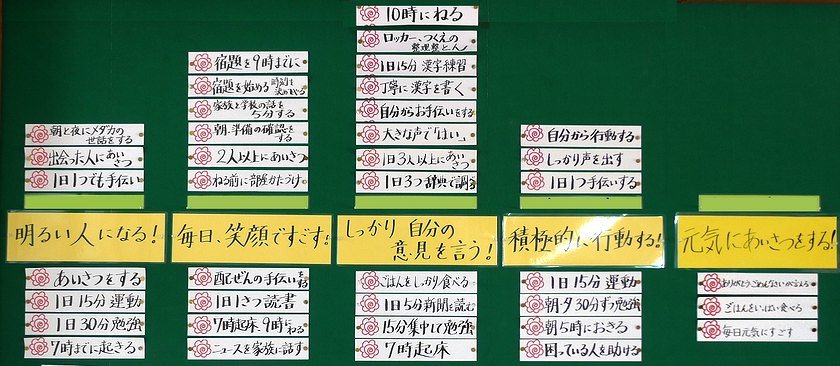 朝と夜にメダカの
世話をする
出会った人にあい
さつ
1日1つでも手伝い
明るい人になる!
あいさつをする
1日15分運動
1日30分勉強
7時までに起きる
宿題を9時までに
宿題を始める時刻を
決めてやる
家族と学校の話を
5分する
朝、準備の確認を
する
2人以上にあいさつ
ねる前に部屋かたづけ
毎日、笑顔ですごす!
配ぜんの手伝いを
する
1日1さつ読書
7時起床、9時ねる
ニュースを家族に話す
10時にねる
ロッカー、つくえの
整理整とん
1日15分漢字練習
丁寧に漢字を書く
自分からお手伝いをする
大きな声で「はい」
1日3人以上にあい
さつ
1日3つ辞典で調る
しっかり自分の
意見を言う!
ごはんをしっかり食べる
1日5分新聞を読む
15分集中して勉強
7時起床
自分から行動する
しっかり声を出す
1日1つ手伝いする
積極的に行動する!
1日15分運動
朝・夕30分ずつ勉強
朝5時におきる
困っている人を助ける
元気にあいさつをする!
ありがとうごめんなさいが言える
ごはんをいっぱい食べる
毎日元気にすごす